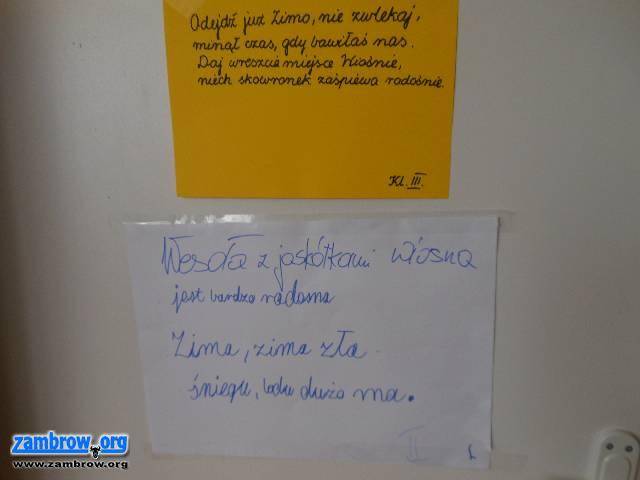 Odejdź już Zimo, nie zwlekaj,
minął czas, gdy bawiłaś nas.
Daj wreszcie miejsce Wiośnie,
niech skowronek zaśpiewa radośnie.
Kl. III.
Wesoła z jaskółkami wiosna
jest bardzo radosna
Zima, zima zła
śniegu, lodu dużo ma.
II
zambrow.org
www.zambrow.org